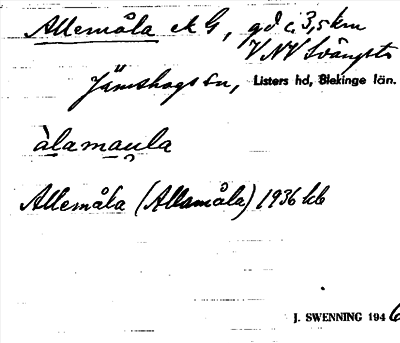 Allemåla ek G, gd c. 3,5 km
VNV Svängsta
Jämshogs sn, Listers hd, Blekinge län.
àlamaula
Allemåla (Allamåla) 1936 kb
J. SWENNING 1946